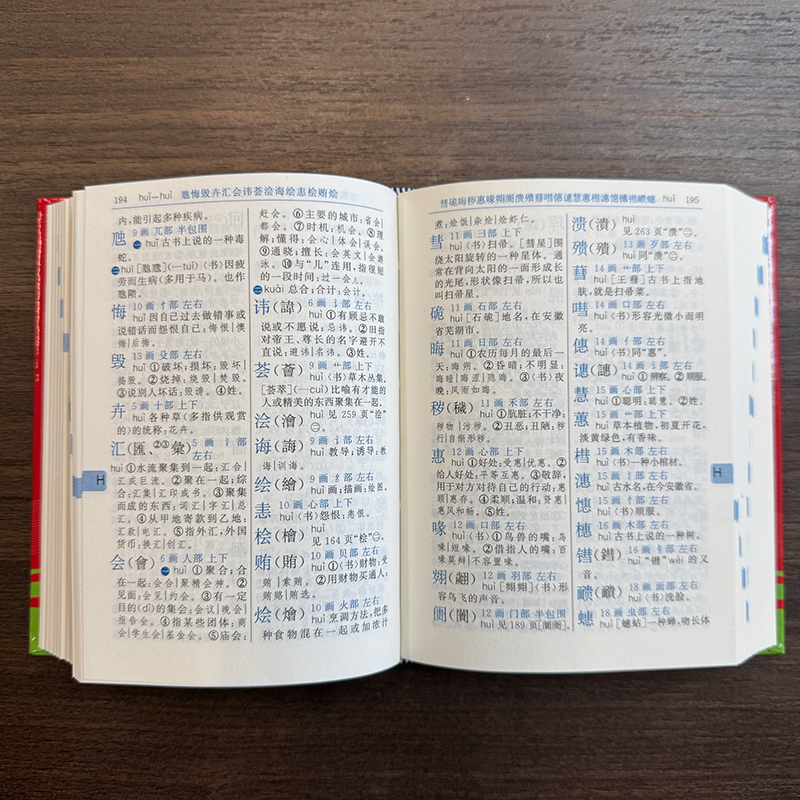 194 huǐ—huì 虺悔毁卉汇会讳荟浍诲绘恚桧贿烩
内,能引起多种疾病。
虺 9画 兀部 半包围
㊀huǐ古书上说的一种毒
蛇。
㊁huī[虺𬯎](—tuí)〈书〉因疲
劳而生病(多用于马)。也作
虺隤。
悔 10画 忄部 左右
huǐ因自己过去做错事或
说错话而怨恨自己:悔恨|懊
悔|后悔。
毁 13画 殳部 左右
huǐ①破坏;损坏:毁坏|
捣毁。②烧掉:烧毁|焚毁。
③说别人坏话:毁谤。④姓。
卉 5画 十部 上下
huì各种草(多指供观赏
的)的统称:花卉。
汇(匯、②③彙) 5画 氵部
左右
huì①水流聚集到一起:汇合|
汇成巨流。②聚在一起;综
合:汇集|汇印成书。③聚集
而成的东西:词汇|字汇|总
汇。④从甲地寄款到乙地:
汇款|电汇。⑤指外汇,外国
货币:换汇|创汇。
会(會) 6画 人部 上下
㊀huì①聚合;合
在一起:会合|聚精会神。②
见面:会见|约会。③有一定
目的(dì)的集会:会议|晚会|
报告会。④指某些团体:商
会|学生会|基金会。⑤庙会:
赶会。⑥主要的城市:省会|
都会。⑦时机:机会。⑧理
解;懂得:会心|体会|误会。
⑨通晓;擅长:会英文|会游
泳。⑩与“儿”连用,指很短
的一段时间:过一会儿。
㊁kuài 总合:合计:会计。
讳(諱) 6画 讠部 左右
huì①有顾忌不敢
说或不愿说:忌讳。②旧指
对帝王、尊长的名字避开不
直说:避讳|名讳。③姓。
荟(薈) 9画 艹部 上下
huì〈书〉草木丛集。
[荟萃](—cuì)比喻有才能的
人或精美的东西聚集在一起。
浍(澮) 9画 氵部 左右
huì 见 259 页“浍”
㊀。
诲(誨) 9画 讠部 左右
huì 教导;诱导:教
诲|训诲。
绘(繪) 9画 纟部 左右
huì 画;描画:绘图。
恚 10画 心部 上下
huì〈书〉怨恨:恚恨。
桧(檜) huì
见164页“桧”㊀。
贿(賄) 10画 贝部 左右
huì①〈书〉财物:受
贿|索贿。②用财物买通人:
贿赂|贿选。
烩(燴) 10画 火部 左右
huì 烹调方法,把多
种食物混在一起或加浓汁
huì 195
煮:烩饭|杂烩|烩虾仁。
彗 11画 彐部 上下
huì〈书〉扫帚。[彗星]围
绕太阳旋转的一种星体。通
常在背向太阳的一面形成长
的光尾,形状像扫帚,所以也
叫扫帚星。
硊 11画 石部 左右
huì[石硊]地名,在安徽
省芜湖市。
晦 11画 日部 左右
huì①农历每月的最后一
天:晦朔。②昏暗;不明显:
晦暗|晦涩|隐晦。③〈书〉夜
晚:风雨如晦。
秽(穢) 11画 禾部 左右
huì①肮脏;不干净:
秽物|污秽。②丑恶;丑陋:秽
行|自惭形秽。
惠 12画 心部 上下
huì①好处:受惠|优惠。②
给人好处:平等互惠。③敬辞,
用于对方对待自己的行动:惠
顾|惠存。④柔顺;温和:贤惠|
惠风和畅。⑤姓。
喙 12画 口部 左右
huì〈书〉①鸟兽的嘴:鸟
喙|短喙。②借指人的嘴:百
喙莫辩|不容置喙。
翙(翽) 12画 羽部 左右
huì[翙翙]〈书〉形
容鸟飞的声音。
阓(闠) 12画 门部 半包围
huì 见189页[阛阓]。
溃(潰) huì
见263页“溃”㊀。
殨(殨) 13画 歹部 左右
huì 同“溃”㊀。
蔧 14画 艹部 上下
huì[王蔧]古书上指地
肤,就是扫帚菜。
嘒 14画 口部 左右
huì〈书〉形容微小而明
亮。
僡 14画 亻部 左右
huì〈书〉同“惠”。
慧 15画 心部 上下
huì①聪明:聪慧。②姓。
蕙 15画 艹部 上下
huì 草本植物,初夏开花,
淡黄绿色,有香味。
槥 15画 木部 左右
huì〈书〉一种小棺材。
潓 15画 氵部 左右
huì 古水名,在今安徽省。
憓 15画 忄部 左右
huì〈书〉顺服。
橞 16画 木部 左右
huì 古书上说的一种树。
huì “” wèi 的又
音。
huì〈书〉洗脸。
蟪 18画 虫部 左右
huì[蟪蛄]一种蝉,吻长体
H
H